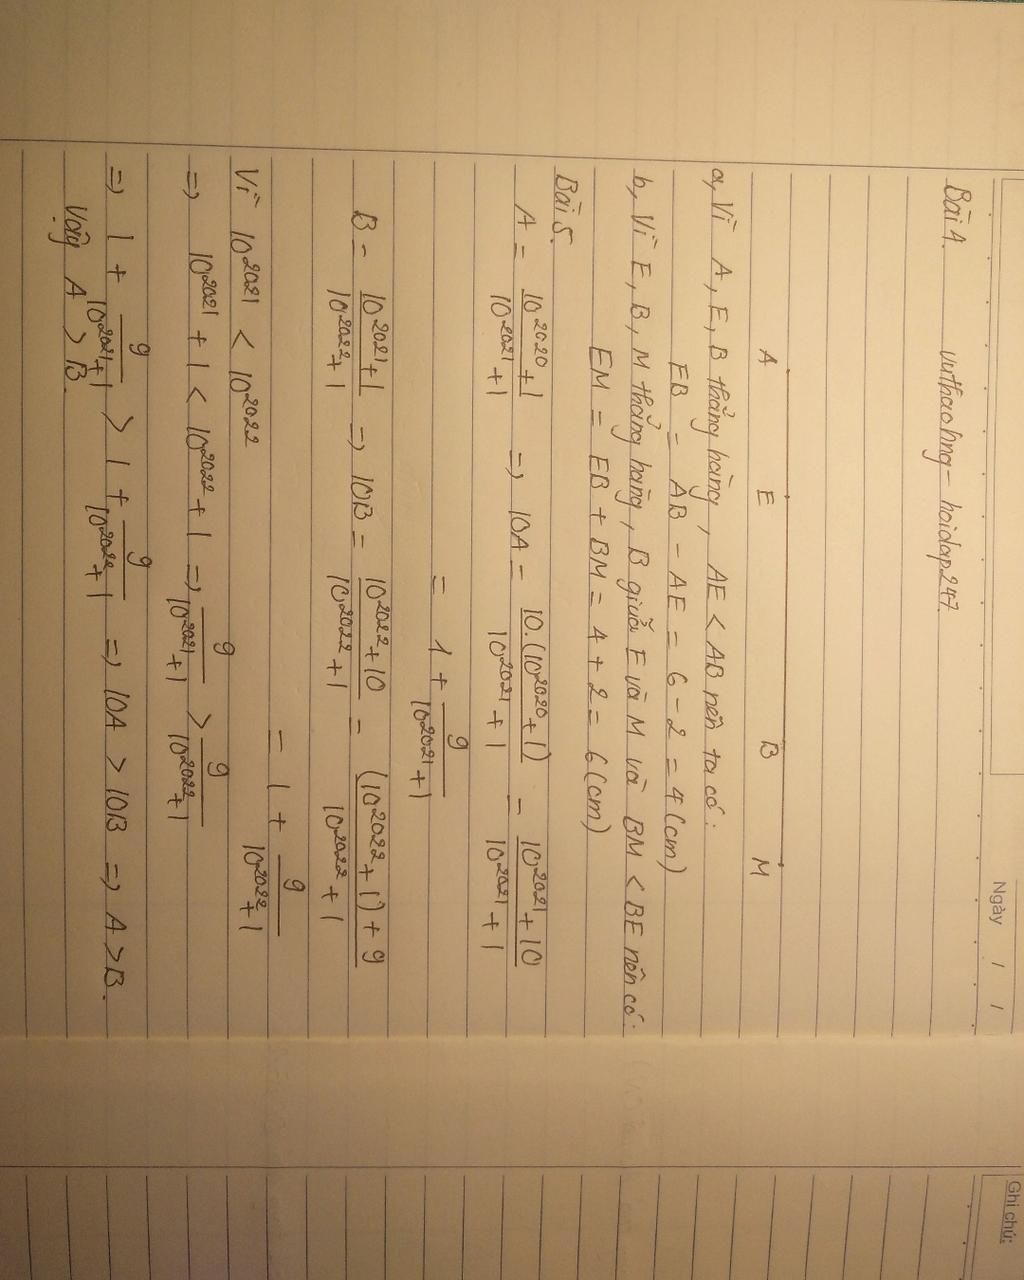 Ngày / /
Ghi chú:
Bài 4. vuthaohng-hoidap247.
A E B M
a, Vì A, E, B thẳng hàng, AE < AB nên ta có:
EB = AB - AE = 6 - 2 = 4 (cm)
b, Vì E, B, M thẳng hàng, B giữa E và M và BM < BE nên có:
EM = EB + BM = 4 + 2 = 6 (cm)
Bài 5.
A = \frac{10^{2020}+1}{10^{2021}+1} => 10A = \frac{10.(10^{2020}+1)}{10^{2021}+1} = \frac{10^{2021}+10}{10^{2021}+1}
= 1 + \frac{9}{10^{2021}+1}
B = \frac{10^{2021}+1}{10^{2022}+1} => 10B = \frac{10^{2022}+10}{10^{2022}+1} = \frac{(10^{2022}+1)+9}{10^{2022}+1}
= 1 + \frac{9}{10^{2022}+1}
Vì 10^{2021} < 10^{2022}
=> 10^{2021} + 1 < 10^{2022} + 1 => \frac{9}{10^{2021}+1} > \frac{9}{10^{2022}+1}
=> 1 + \frac{9}{10^{2021}+1} > 1 + \frac{9}{10^{2022}+1} => 10A > 10B => A > B.
Vậy A > B.